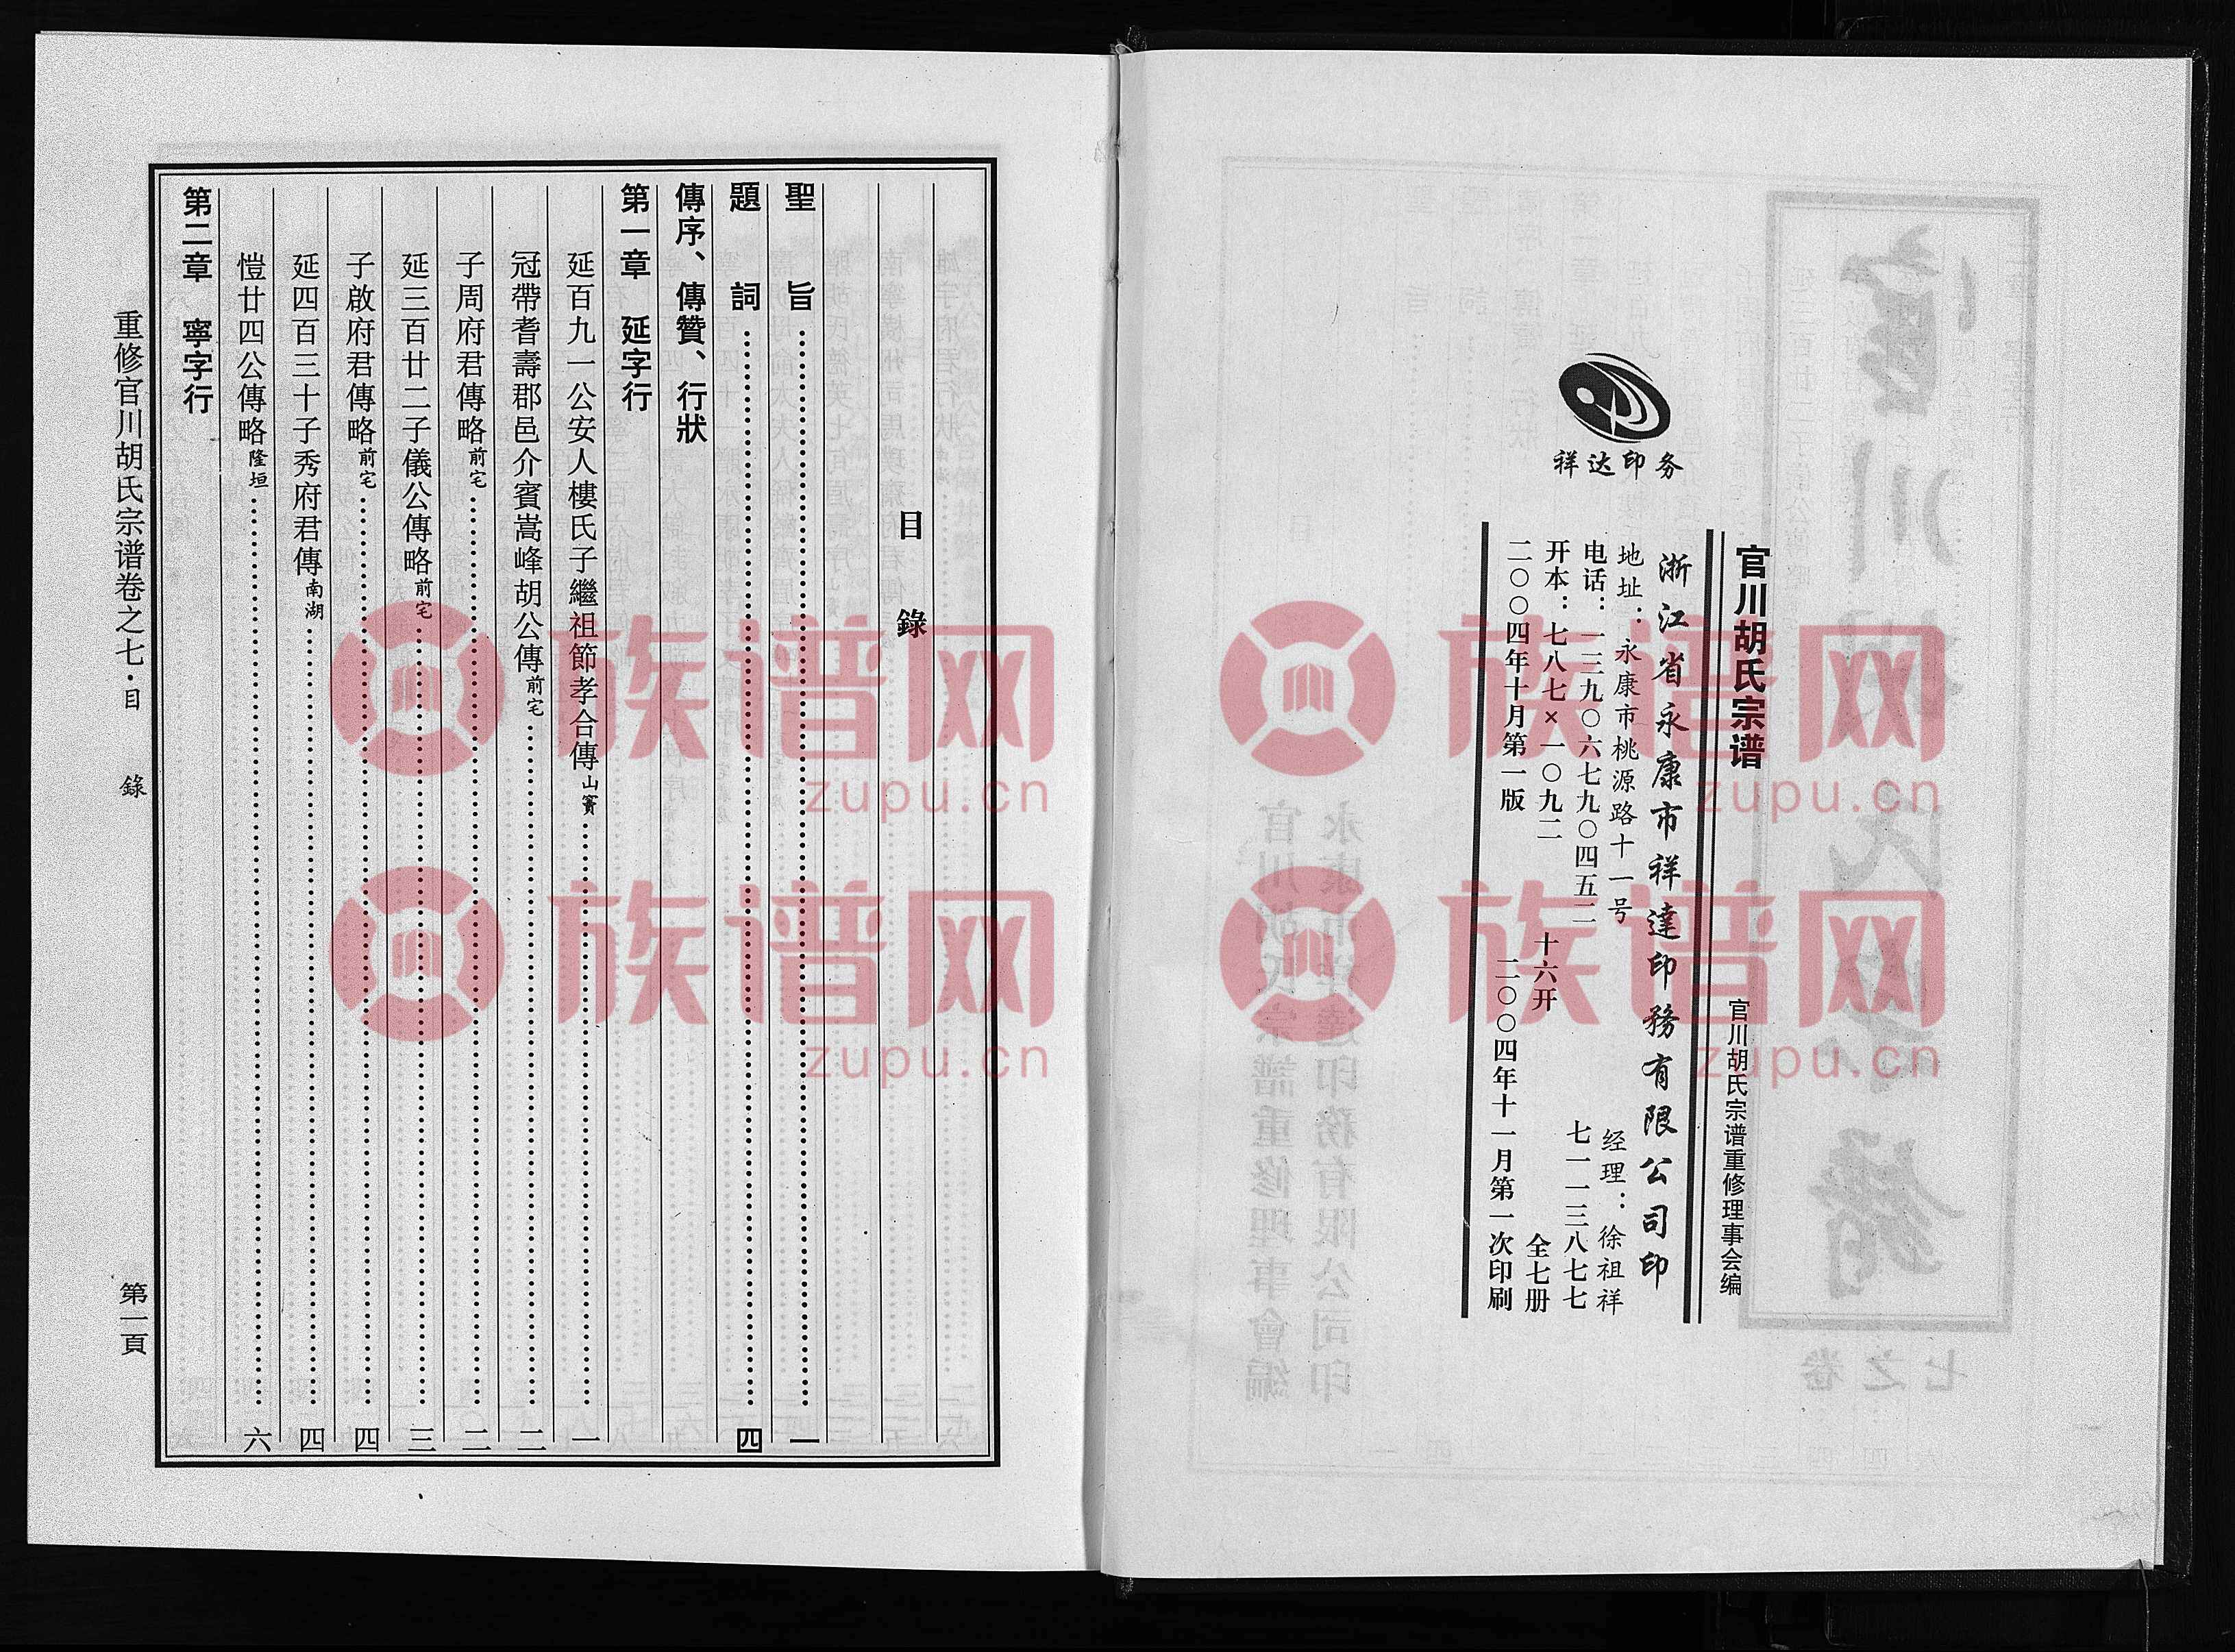 祥达印务
官川胡氏宗谱　官川胡氏宗谱重修理事会编
浙江省永康市祥達印務有限公司印
地址：永康市桃源路十一号　经理：徐祖祥
电话：一三九〇六七九〇四五二　七一一三八七七
开本：七八七×一〇九二　十六开　全七册
二〇〇四年十月第一版　二〇〇四年十一月第一次印刷
目錄
聖旨……一
題詞……四
傳序、傳贊、行狀
第一章　延字行
延百九一公安人樓氏子繼祖節孝合傳山竇……一
冠帶耆壽郡邑介賓嵩峰胡公傳前宅……二
子周府君傳略前宅……二
延三百廿二子儀公傳略前宅……三
子啟府君傳略前宅……四
延四百三十子秀府君傳南湖……四
愷廿四公傳略隆垣……六
第二章　寧字行
重修官川胡氏宗谱卷之七·目錄　第一頁
族谱网
zupu.cn
族谱网
zupu.cn
族谱网
zupu.cn
族谱网
zupu.cn